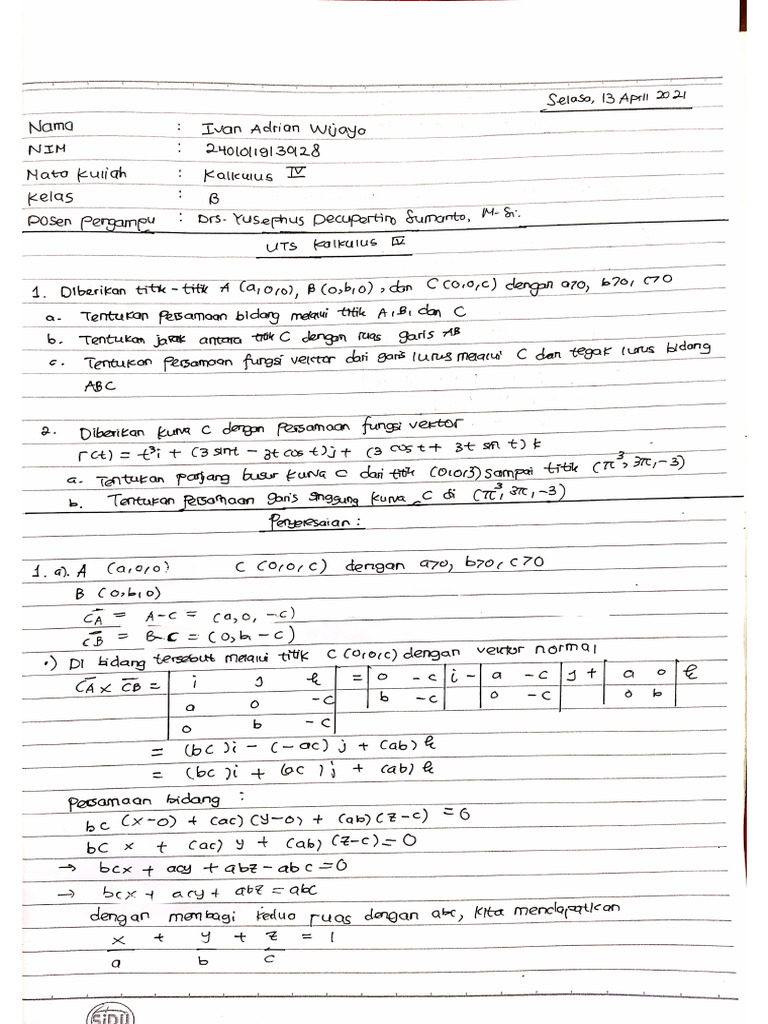 Selasa, 13 April 2021
Nama : Ivan Adrian Wijaya
NIM : 24010119130128
Mata Kuliah : Kalkulus IV
Kelas : B
Dosen Pengampu : Drs. Yusephus Decupertino Sumanto, M.Si.
UTS Kalkulus IV
1. Diberikan titik-titik A (a,0,0), B(0,b,0), dan C (0,0,c) dengan a>0, b>0, c>0
a. Tentukan persamaan bidang melalui titik A, B, dan C
b. Tentukan jarak antara titik C dengan ruas garis AB
c. Tentukan persamaan fungsi vektor dari garis lurus melalui C dan tegak lurus bidang
ABC
2. Diberikan kurva C dengan persamaan fungsi vektor
r(t) = t³i + (3 sint - 3t cos t)j + (3 cos t + 3t sin t) k
a. Tentukan panjang busur kurva C dari titik (0,0,3) sampai titik (π³, 3π, -3)
b. Tentukan persamaan garis singgung kurva C di (π³, 3π, -3)
Penyelesaian :
1. a). A (a,0,0) C (0,0,c) dengan a>0, b>0, c>0
B (0,b,0)
CA = A-C = (a,0,-c)
CB = B-C = (0,b,-c)
•) Di bidang tersebut melalui titik C (0,0,c) dengan vektor normal
CA × CB = | i j k | = | 0 -c | i - | a -c | j + | a 0 | k
| a 0 -c | | b -c | | 0 -c | | 0 b |
| 0 b -c |
= (bc)i - (-ac) j + (ab) k
= (bc)i + (ac) j + (ab) k
Persamaan bidang :
bc (x-0) + (ac) (y-0) + (ab) (z-c) = 0
bc x + (ac) y + (ab) (z-c) = 0
→ bcx + acy + abz - abc = 0
→ bcx + acy + abz = abc
dengan membagi kedua ruas dengan abc, kita mendapatkan
x/a + y/b + z/c = 1
SiDU